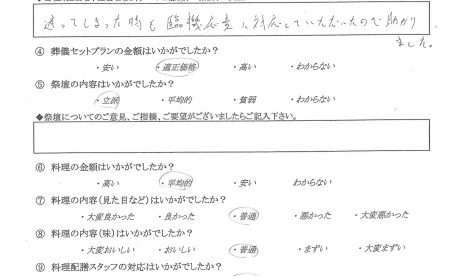 迷ってしまった時も臨機応変に対応していただいたので助かり
ました。
④ 葬儀セットプランの金額はいかがでしたか？
・安い ・適正価格 ・高い ・わからない
⑤ 祭壇の内容はいかがでしたか？
・立派 ・平均的 ・貧弱 ・わからない
◆祭壇についてのご意見、ご指摘、ご要望がございましたらご記入下さい。
⑥ 料理の金額はいかがでしたか？
・高い ・平均的 ・安い わからない
⑦ 料理の内容（見た目など）はいかがでしたか？
・大変良かった ・良かった ・普通 ・悪かった ・大変悪かった
⑧ 料理の内容（味）はいかがでしたか？
・大変おいしい ・おいしい ・普通 ・まずい ・大変まずい
⑨ 料理配膳スタッフの対応はいかがでしたか？